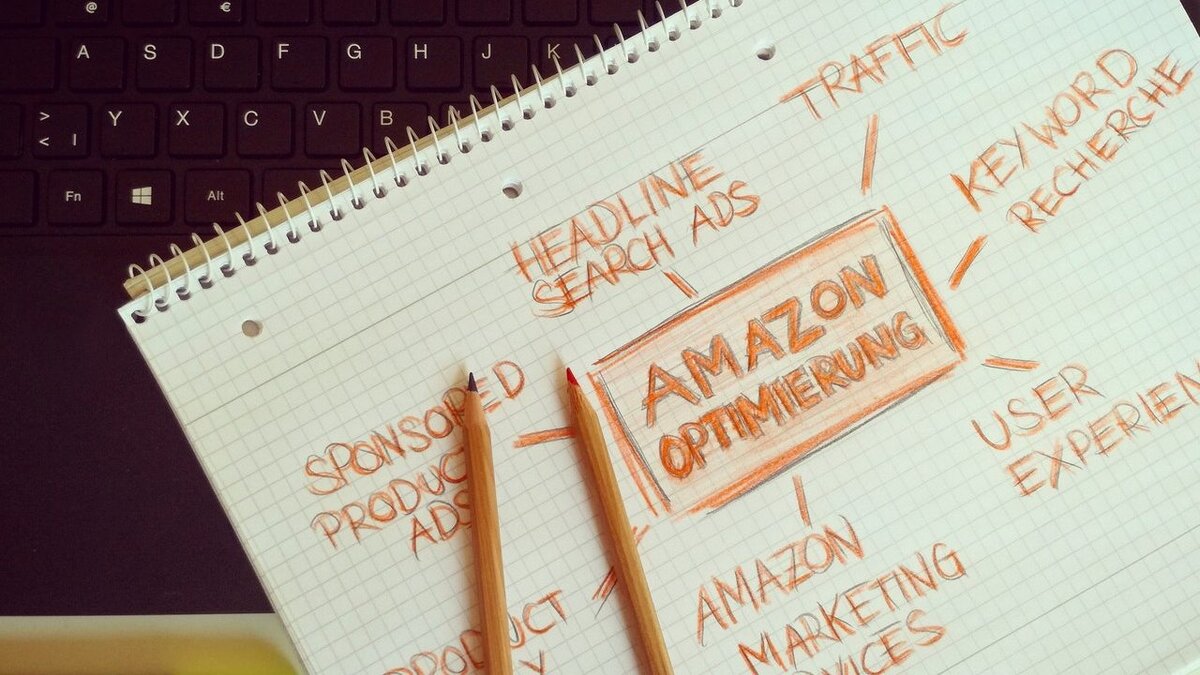 @ €
A S D F G H J K
> < | Y X C V B
Fn Alt
TRAFFIC
KEYWORD
RECHERCHE
HEADLINE
SEARCH ADS
AMAZON
OPTIMIERUNG
USER
EXPERIEN
SPONSORED
PRODUCT
ADS
AMAZON
MARKETING
PRODUCT